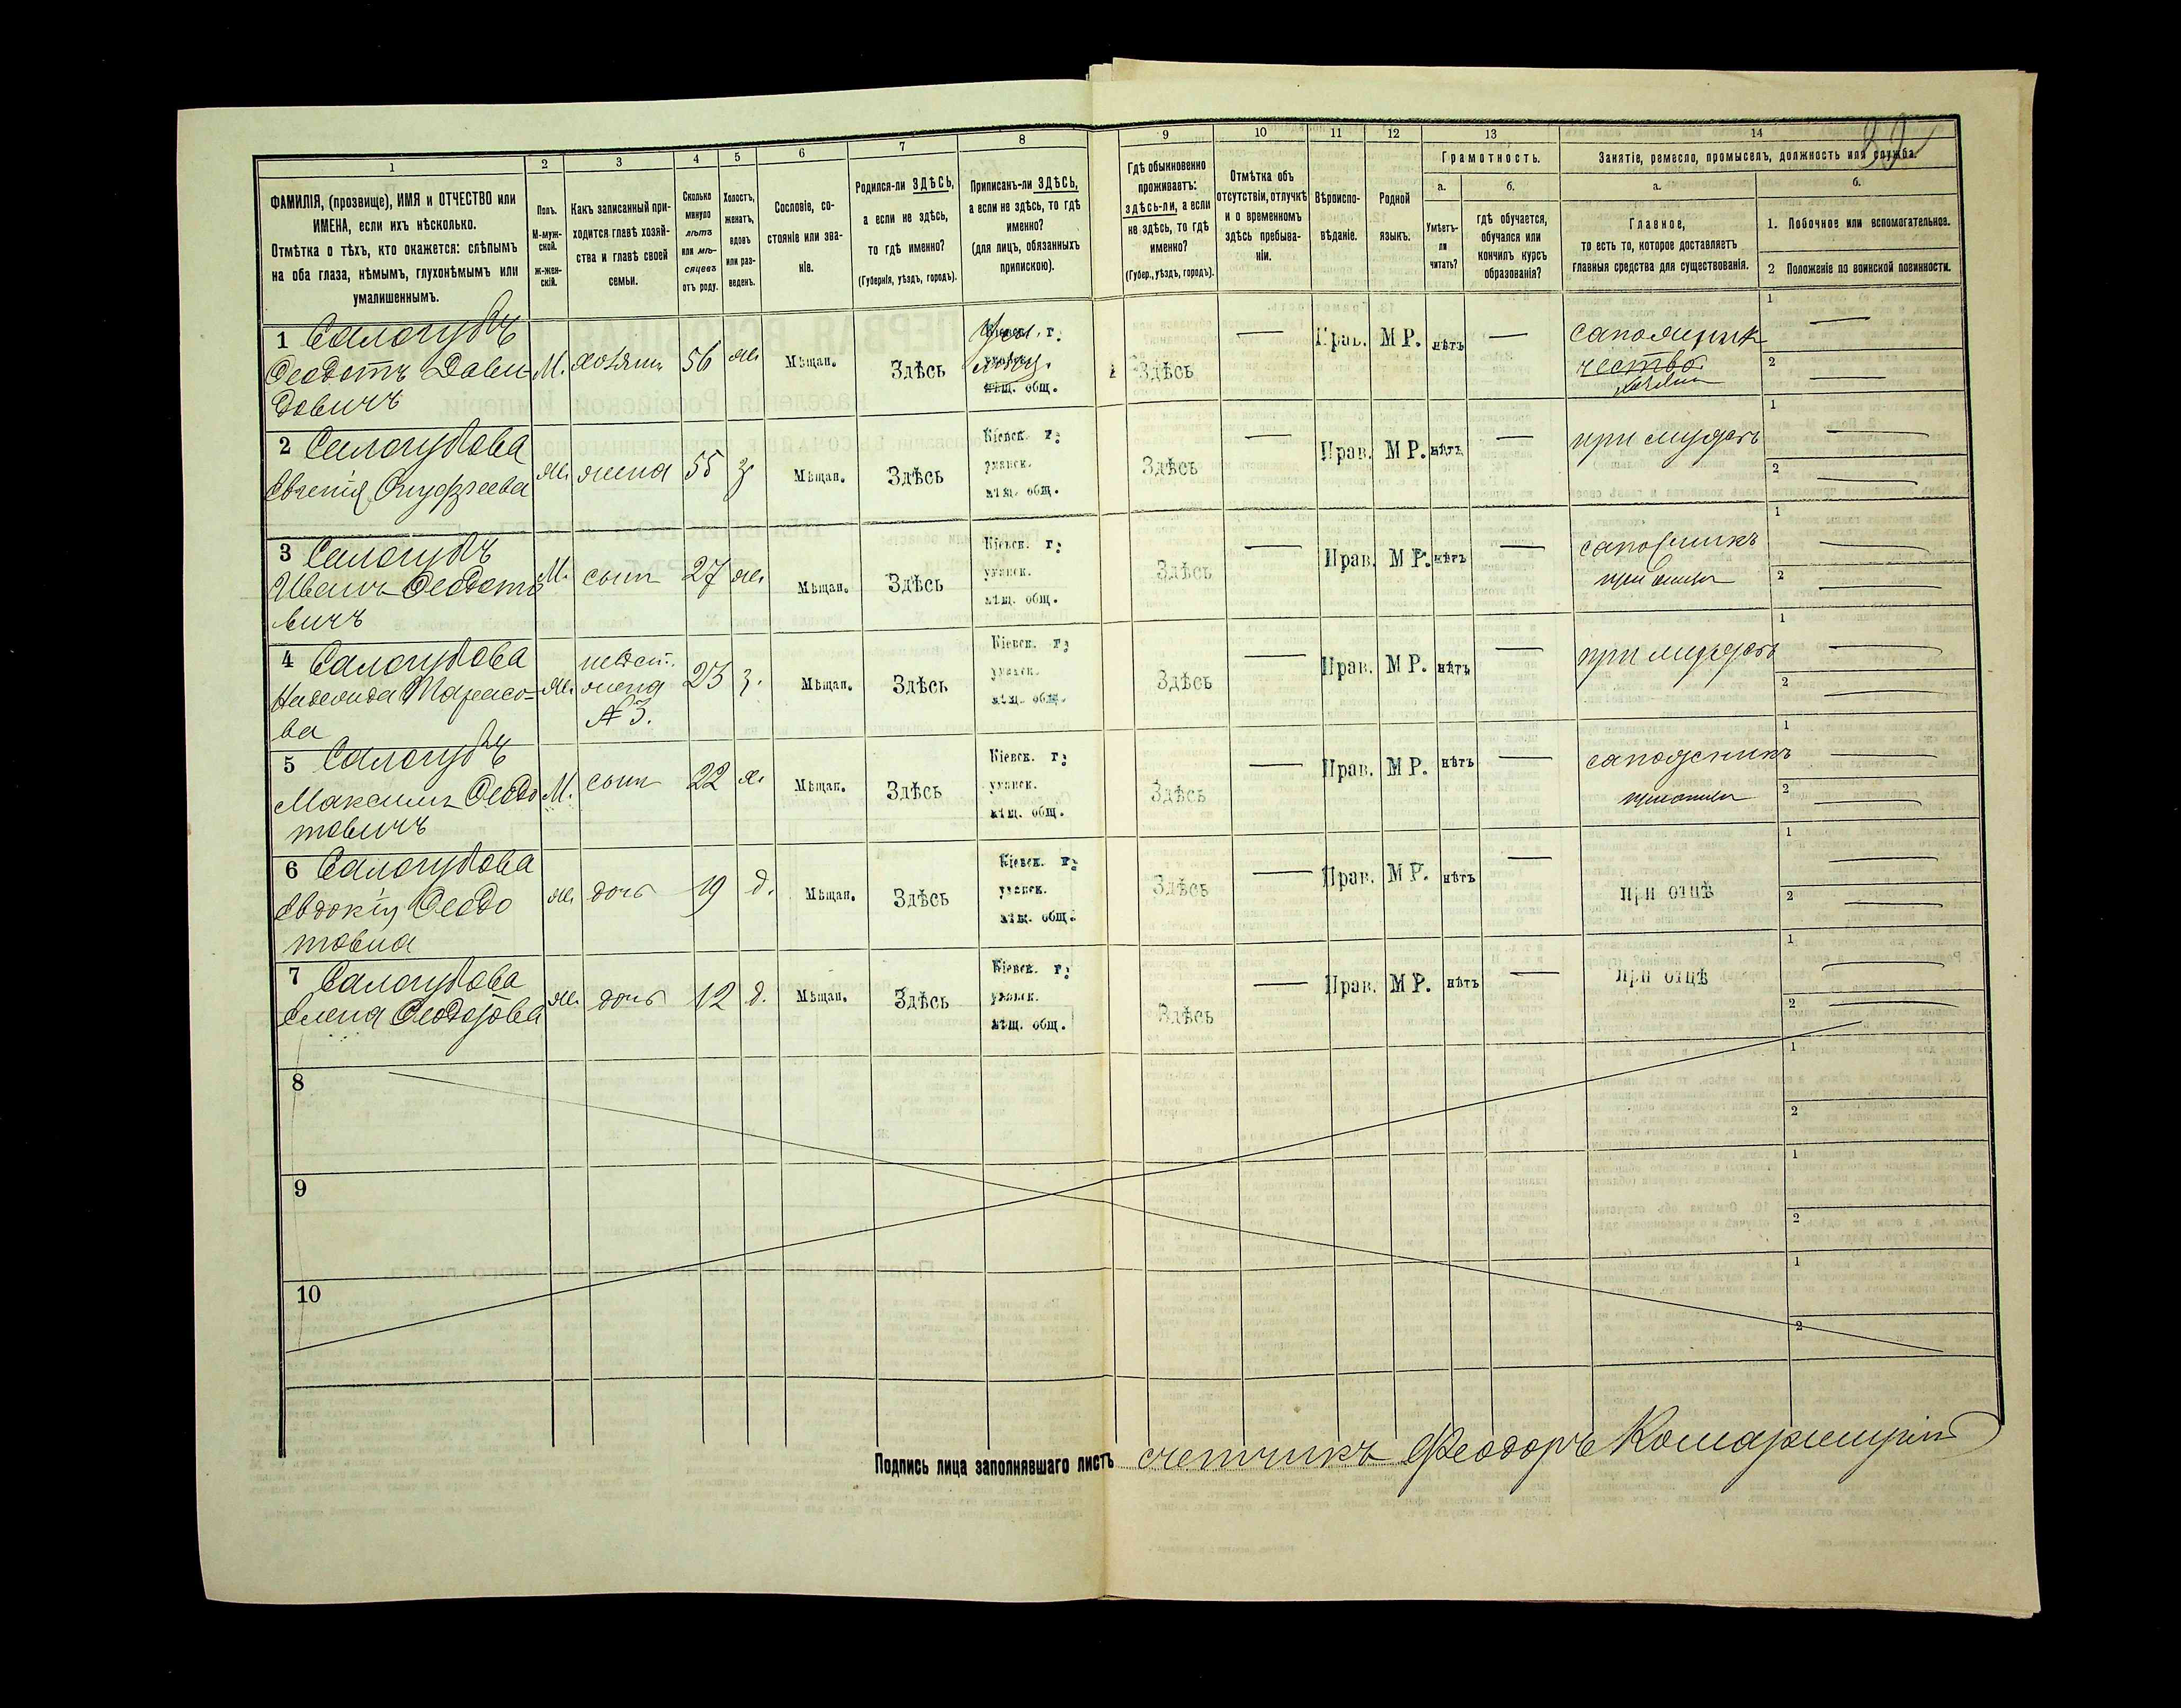 39
1 2 3 4 5 6 7 8 9 10 11 12 13 14
ФАМИЛІЯ, (прозвище), ИМЯ и ОТЧЕСТВО или
ИМЕНА, если ихъ нѣсколько.
Отмѣтка о тѣхъ, кто окажется: слѣпымъ
на оба глаза, нѣмымъ, глухонѣмымъ или
умалишеннымъ.
Полъ.
М-муж-
ской.
Ж-жен-
скій.
Какъ записанный при-
ходится главѣ хозяй-
ства и главѣ своей
семьи.
Сколько
минуло
лѣтъ
или мѣ-
сяцевъ
отъ роду.
Холостъ,
женатъ,
вдовъ
или раз-
веденъ.
Сословіе, со-
стояніе или зва-
ніе.
Родился-ли ЗДѢСЬ,
а если не здѣсь,
то гдѣ именно?
(Губернія, уѣздъ, городъ).
Приписанъ-ли ЗДѢСЬ,
а если не здѣсь, то гдѣ
именно?
(для лицъ, обязанныхъ
припискою).
Гдѣ обыкновенно
проживаетъ:
здѣсь-ли, а если
не здѣсь, то гдѣ
именно?
(Губер., уѣздъ, городъ).
Отмѣтка объ
отсутствіи, отлучкѣ
и о временномъ
здѣсь пребыва-
ніи.
Вѣроиспо-
вѣданіе.
Родной
языкъ.
Грамотность.
а.
Умѣетъ-
ли
читать?
б.
гдѣ обучается,
обучался или
кончилъ курсъ
образованія?
Занятіе, ремесло, промыселъ, должность или служба.
а.
Главное,
то есть то, которое доставляетъ
главныя средства для существованія.
б.
1. Побочное или вспомогательное.
2 Положеніе по воинской повинности.
1 Салогубъ
Феодотъ Дави-
довичъ
М. хозяинъ 56 ж. Мѣщан. Здѣсь
г.
общ.
Здѣсь — Прав. МР. нѣтъ —
сапожни
чество
хозяинъ
1 —
2 —
2 Салогубова
Евгенія Онуфріева
ж. жена 55 з. Мѣщан. Здѣсь
Кіевск. г.
уманск.
мѣщ. общ.
Здѣсь — Прав. МР. нѣтъ —
при мужѣ
1 —
2 —
3 Салогубъ
Иванъ Феодото
вичъ
М. сынъ 27 ж. Мѣщан. Здѣсь
Кіевск. г.
уманск.
мѣщ. общ.
Здѣсь — Прав. МР. нѣтъ —
сапожникъ
1 —
2 —
4 Салогубова
Тарасо-
ва
ж. невѣст.
жена
№ 3.
25 з. Мѣщан. Здѣсь
Кіевск. г.
уманск.
мѣщ. общ.
Здѣсь — Прав. МР. нѣтъ —
при мужѣ
1 —
2 —
5 Салогубъ
Максимъ Феодо
товичъ
М. сынъ 22 х. Мѣщан. Здѣсь
Кіевск. г.
уманск.
мѣщ. общ.
Здѣсь — Прав. МР. нѣтъ —
сапожникъ
1 —
2 —
6 Салогубова
Евдокія Феодо
товна
ж. дочь 19 д. Мѣщан. Здѣсь
Кіевск. г.
уманск.
мѣщ. общ.
Здѣсь — Прав. МР. нѣтъ —
при отцѣ
1 —
2 —
7 Салогубова
Елена Феодотова
ж. дочь 12 д. Мѣщан. Здѣсь
Кіевск. г.
уманск.
мѣщ. общ.
Здѣсь — Прав. МР. нѣтъ —
при отцѣ
1 —
2 —
8
1
2
9
1
2
10
1
2
Подпись лица заполнявшаго листъ счетчикъ Феодоръ Комарницкій